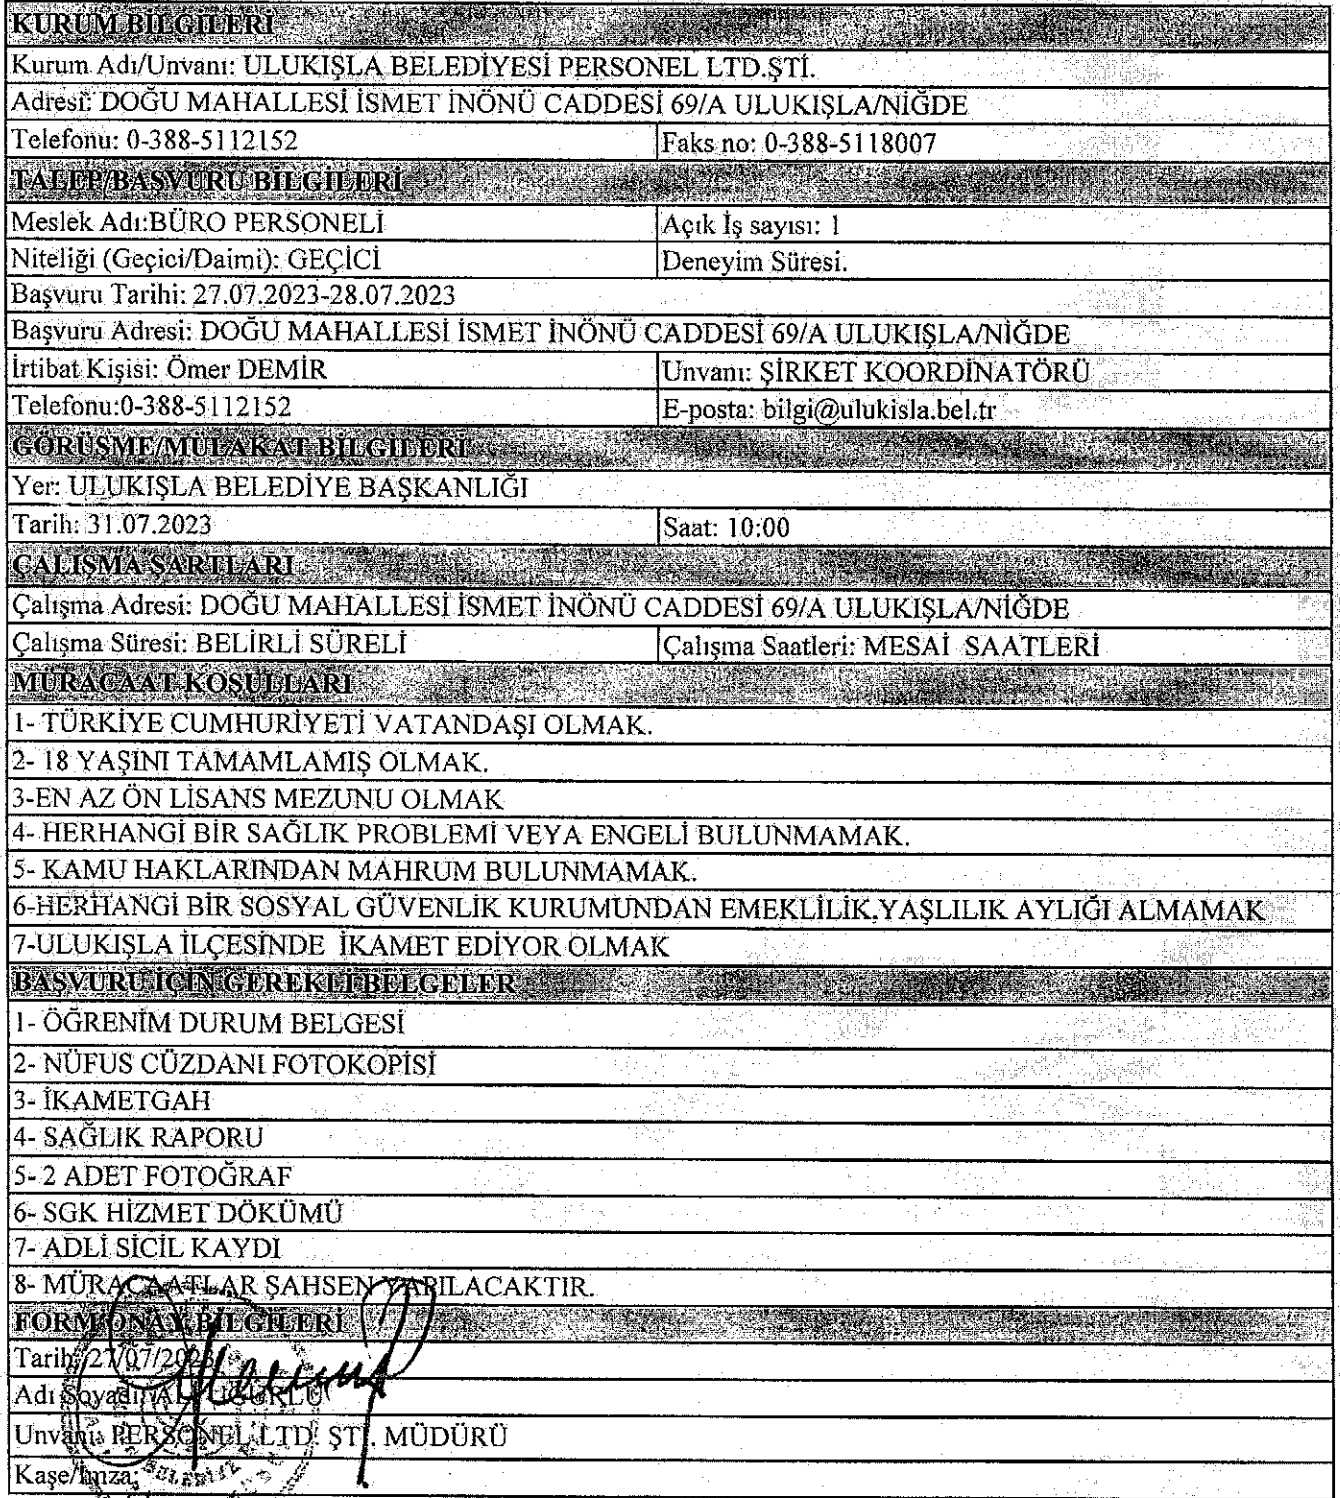 KURUM BİLGİLERİ
Kurum Adı/Unvanı: ULUKIŞLA BELEDİYESİ PERSONEL LTD.ŞTİ.
Adresi: DOĞU MAHALLESİ İSMET İNÖNÜ CADDESİ 69/A ULUKIŞLA/NİĞDE
Telefonu: 0-388-5112152 Faks no: 0-388-5118007
TALEP/BAŞVURU BİLGİLERİ
Meslek Adı:BÜRO PERSONELİ Açık İş sayısı: 1
Niteliği (Geçici/Daimi): GEÇİCİ Deneyim Süresi.
Başvuru Tarihi: 27.07.2023-28.07.2023
Başvuru Adresi: DOĞU MAHALLESİ İSMET İNÖNÜ CADDESİ 69/A ULUKIŞLA/NİĞDE
İrtibat Kişisi: Ömer DEMİR Unvanı: ŞİRKET KOORDİNATÖRÜ
Telefonu:0-388-5112152 E-posta: bilgi@ulukisla.bel.tr
GÖRÜŞME/MÜLAKAT BİLGİLERİ
Yer: ULUKIŞLA BELEDİYE BAŞKANLIĞI
Tarih: 31.07.2023 Saat: 10:00
ÇALIŞMA ŞARTLARI
Çalışma Adresi: DOĞU MAHALLESİ İSMET İNÖNÜ CADDESİ 69/A ULUKIŞLA/NİĞDE
Çalışma Süresi: BELİRLİ SÜRELİ Çalışma Saatleri: MESAİ SAATLERİ
MÜRACAAT KOŞULLARI
1- TÜRKİYE CUMHURİYETİ VATANDAŞI OLMAK.
2- 18 YAŞINI TAMAMLAMIŞ OLMAK.
3-EN AZ ÖN LİSANS MEZUNU OLMAK
4- HERHANGİ BİR SAĞLIK PROBLEMİ VEYA ENGELİ BULUNMAMAK.
5- KAMU HAKLARINDAN MAHRUM BULUNMAMAK.
6-HERHANGİ BİR SOSYAL GÜVENLİK KURUMUNDAN EMEKLİLİK,YAŞLILIK AYLIĞI ALMAMAK
7-ULUKIŞLA İLÇESİNDE İKAMET EDİYOR OLMAK
BAŞVURU İÇİN GEREKLİ BELGELER
1- ÖĞRENİM DURUM BELGESİ
2- NÜFUS CÜZDANI FOTOKOPİSİ
3- İKAMETGAH
4- SAĞLIK RAPORU
5- 2 ADET FOTOĞRAF
6- SGK HİZMET DÖKÜMÜ
7- ADLİ SİCİL KAYDI
8- MÜRACAATLAR ŞAHSEN YAPILACAKTIR.
FORM ONAY BİLGİLERİ
Tarih: 27/07/2023
Adı Soyadı:
Unvanı: PERSONEL LTD. ŞTİ. MÜDÜRÜ
Kaşe/İmza: